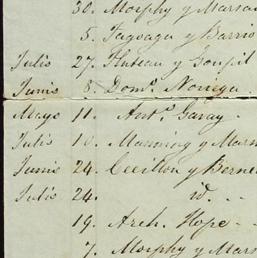 30. Morphy y Marza
5. Tagoaga y Barrio
Julio 27. Huteau y Goupil
Junio 8. Domº. Noriega
Mayo 11. Antº. Garay.
Julio 1 . Manning y Marsh
Junio 24. Cecillon y Berne
Julio 24. id. . .
19. Arch. Hope - -
7. Morphy y Mar